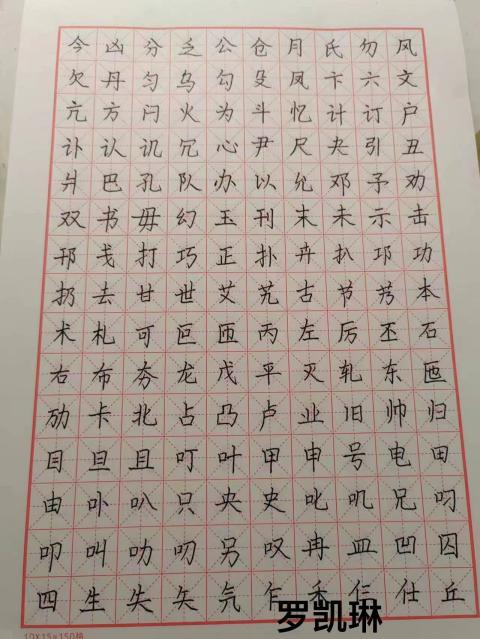 今凶分乏公仓月氏勿风
欠丹匀乌勾殳凤卞六文
亢方闩火为斗忆计订户
讣认讥冗心尹尺夬引丑
爿巴孔队办以允邓予劝
双书毋幻玉刊末未示击
邗戋打巧正扑卉扒邛功
扔去甘世艾艽古节艿本
术札可叵匝丙左厉丕石
右布夯龙戊平灭轧东匜
劢卡北占凸卢业旧帅归
目旦且叮叶甲申号电田
由卟叭只央史叱叽兄叼
叩叫叻叨另叹冉皿凹囚
四生失矢气乍禾仨仕丘
罗凯琳
10X15=150格